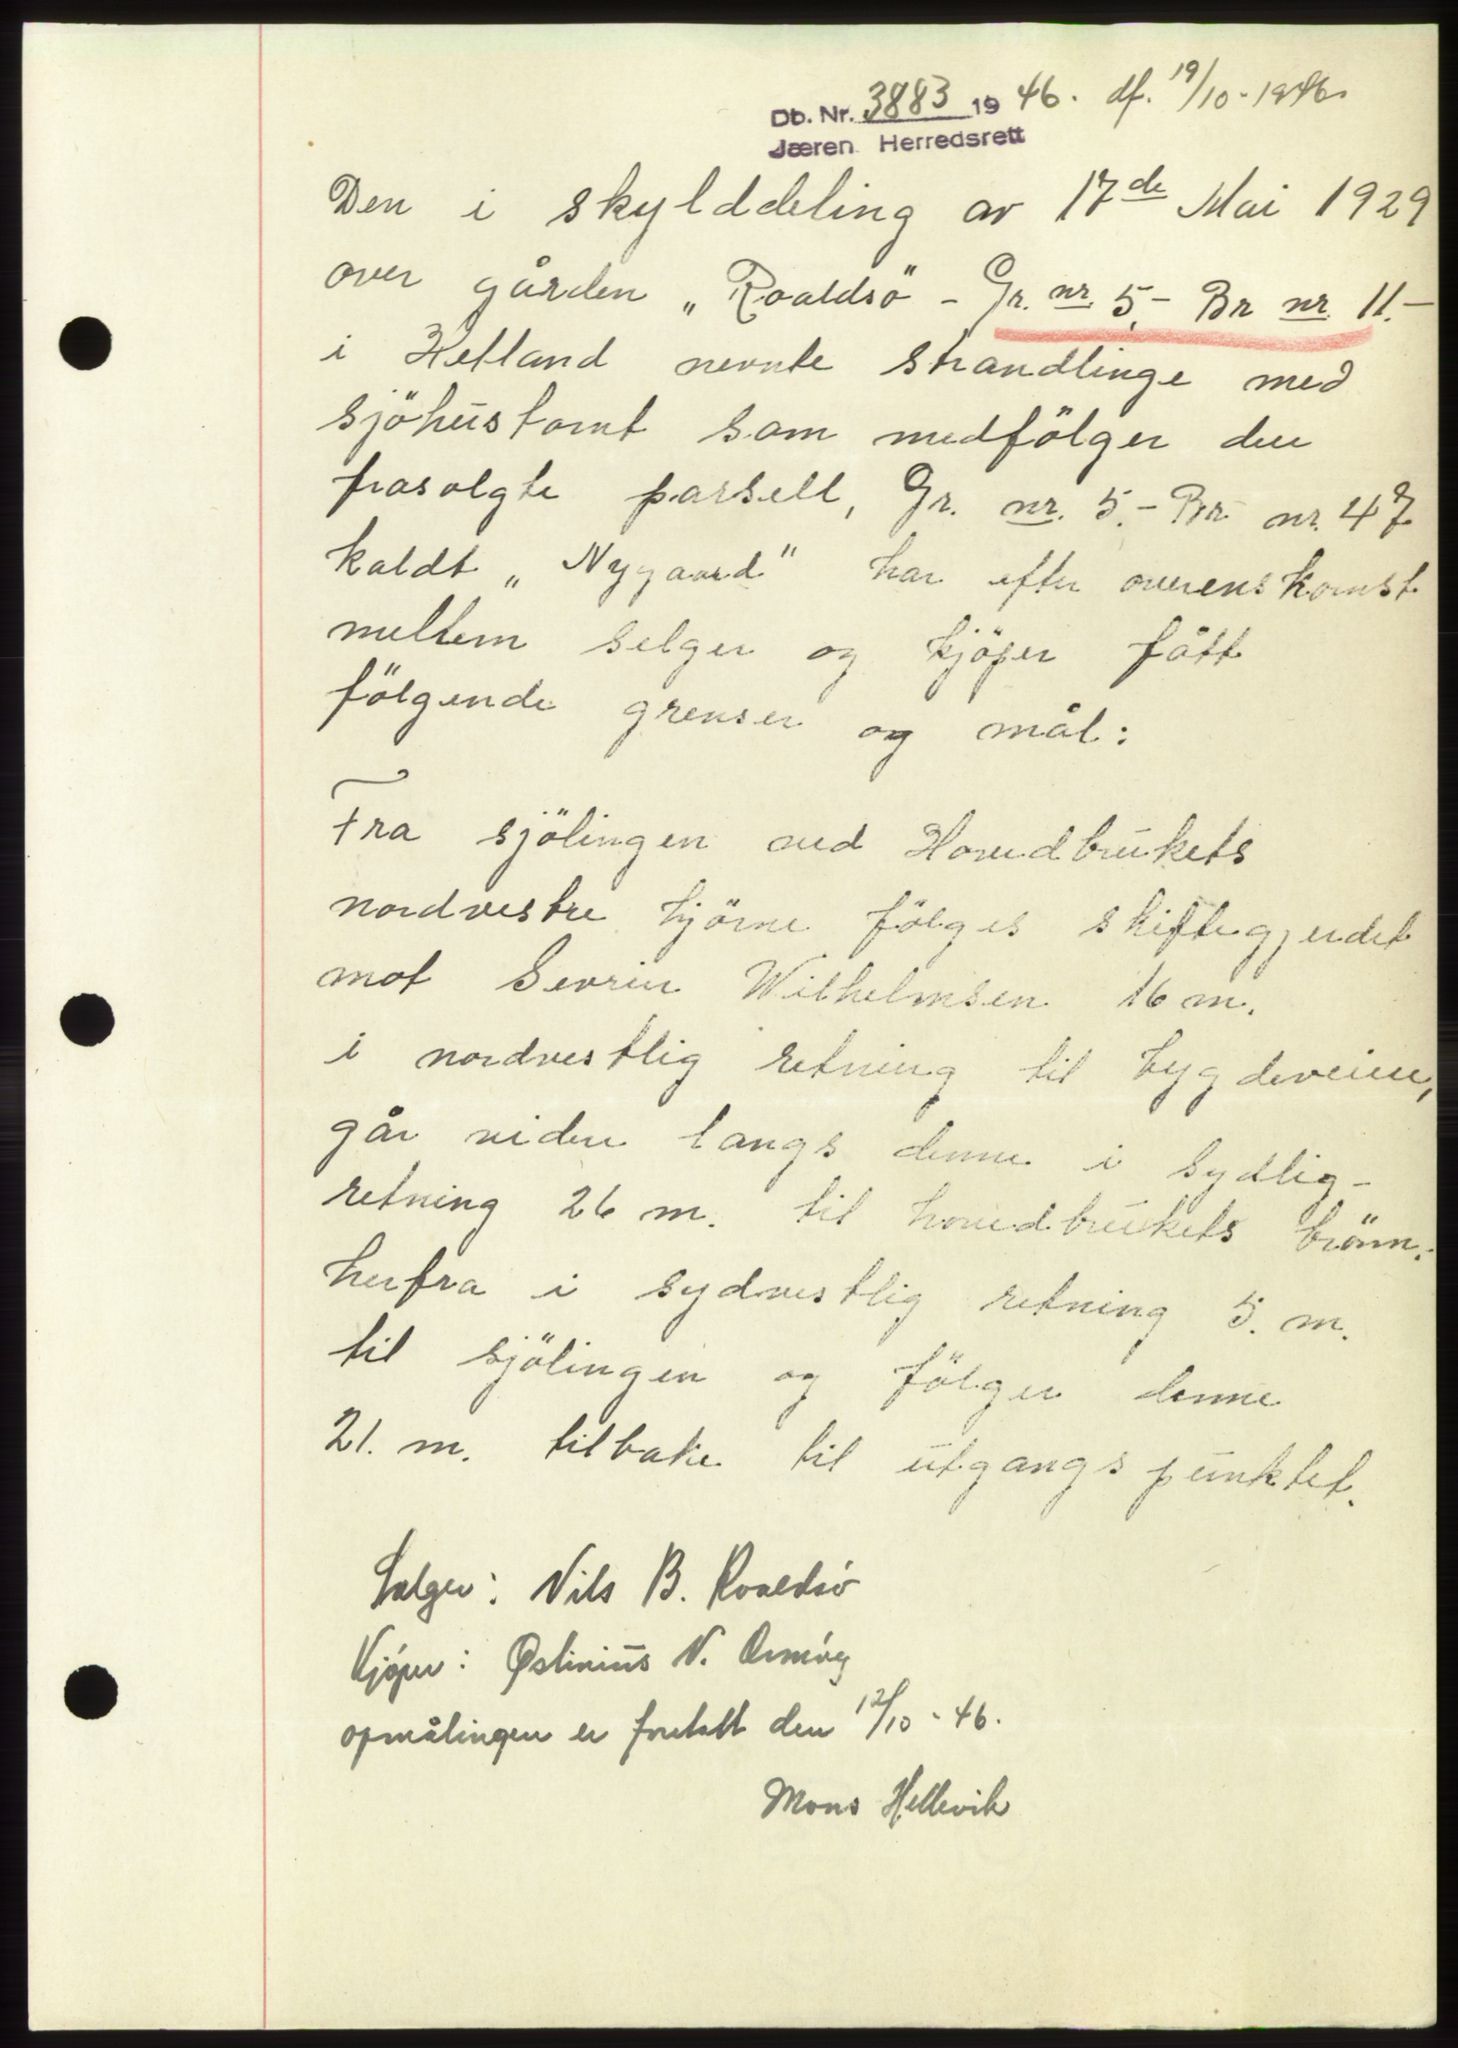 Db. Nr. 3883 1946. df. 19/10-1946.
Jæren Herredsrett
Den i skylddeling av 17de Mai 1929
over gården „Roaldsö" - Gr. nr. 5.- Br nr. 11.-
i Hetland nevnte strandlinge med
sjöhustomt som medfölger den
frasolgte parsell, Gr. nr. 5.- Br nr. 47
kaldt „Nygaard" har efter overenskomst
mellem selger og kjöper fått
fölgende grenser og mål:
Fra sjölingen ved Hovedbrukets
nordvestre hjörne fölges skiftegjerdet
mot Sevrin Wilhelmsen 16 m.
i nordvestlig retning til bygdeveien,
går videre langs denne i sydlig-
retning 26 m. til hovedbrukets brönn.
herfra i sydvestlig retning 5. m.
til sjölingen og fölger denne
21. m. tilbake til utgangspunktet.
Selger: Nils B. Roaldsø
Kjöper: Østinius N.
opmålingen er foretatt den 12/10-46.
Mons Hellevik